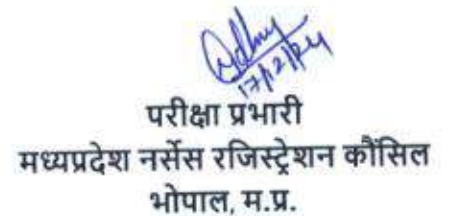 17/12/24
परीक्षा प्रभारी
मध्यप्रदेश नर्सेस रजिस्ट्रेशन कौंसिल
भोपाल, म.प्र.